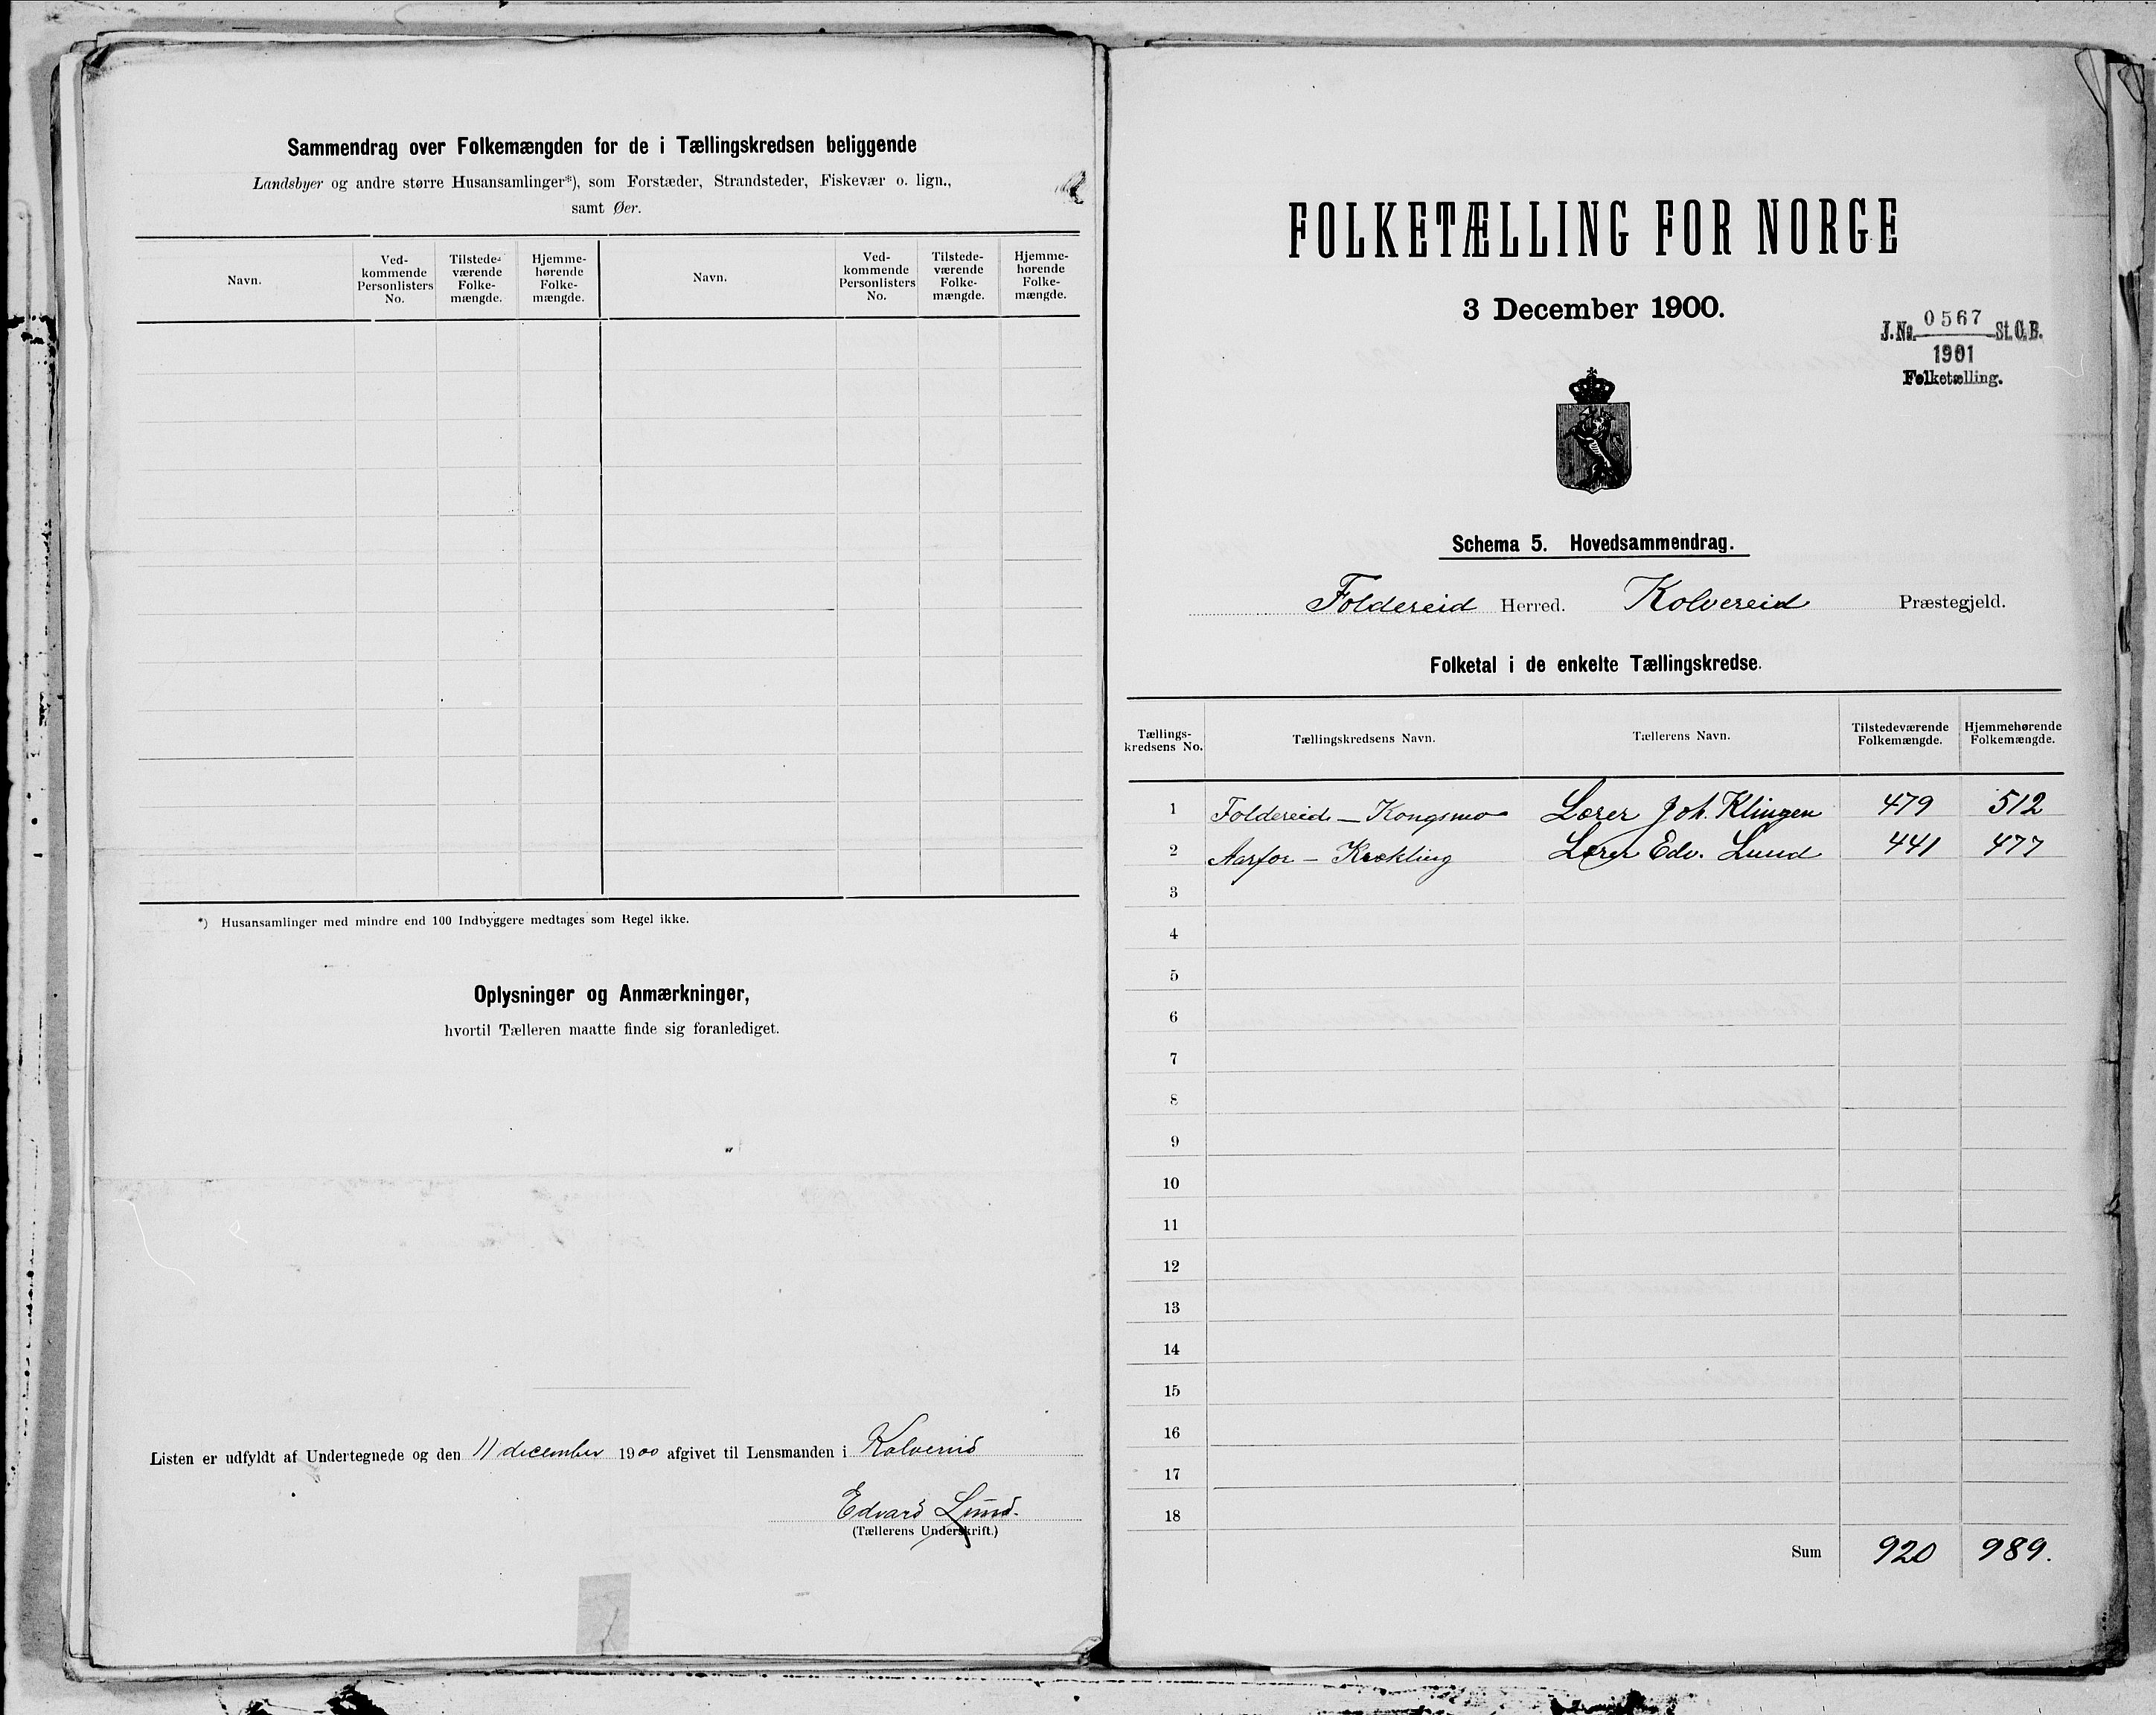 Sammendrag over Folkemængden for de i Tællingskredsen beliggende
Landsbyer og andre større Husansamlinger*), som Forstæder, Strandsteder, Fiskevær o. lign.,
samt Øer.
Navn. Ved-kommende Personlisters No. Tilstede-værende Folke-mængde. Hjemme-hørende Folke-mængde. Navn. Ved-kommende Personlisters No. Tilstede-værende Folke-mængde. Hjemme-hørende Folke-mængde.
*) Husansamlinger med mindre end 100 Indbyggere medtages som Regel ikke.
Oplysninger og Anmærkninger,
hvortil Tælleren maatte finde sig foranlediget.
Listen er udfyldt af Undertegnede og den 11 december 1900 afgivet til Lensmanden i Kolvereid
Edvard Lund.
(Tællerens Underskrift.)
FOLKETÆLLING FOR NORGE
3 December 1900.
J. No. 0567 St. C. B.
1901
Folketælling.
Schema 5. Hovedsammendrag.
Foldereid Herred. Kolvereid Præstegjeld.
Folketal i de enkelte Tællingskredse.
Tællings-kredsens No. Tællingskredsens Navn. Tællerens Navn. Tilstedeværende Folkemængde. Hjemmehørende Folkemængde.
1 Foldereid – Kongsmo Lærer Joh. Klingen 479 512
2 Aarfor – Krækling Lærer Edv. Lund 441 477
3
4
5
6
7
8
9
10
11
12
13
14
15
16
17
18
Sum 920 989.